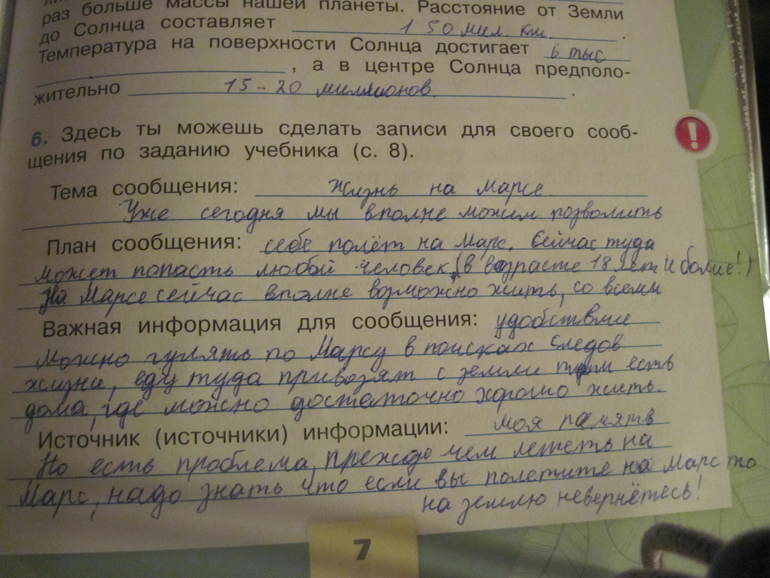 раз больше массы нашей планеты. Расстояние от Земли
до Солнца составляет 150 мил. км.
Температура на поверхности Солнца достигает 6 тыс
, а в центре Солнца предполо-
жительно 15-20 миллионов.
6. Здесь ты можешь сделать записи для своего сооб-
щения по заданию учебника (с. 8).
Тема сообщения: Жизнь на Марсе
Уже сегодня мы вполне можем позволить
План сообщения: себе полёт на Марс. Сейчас туда
может попасть любой человек (в возрасте 18 лет и более!)
На Марсе сейчас вполне возможно жить, со всеми
Важная информация для сообщения: удобствми
Можно гулять по Марсу в поисках следов
жизни, еду туда привозят с земли там есть
дома, где можно достаточно хорошо жить.
Источник (источники) информации: моя память
Но есть проблема, прежде чем лететь на
Марс, надо знать что если вы полетите на Марс то
на землю невернётесь!
7